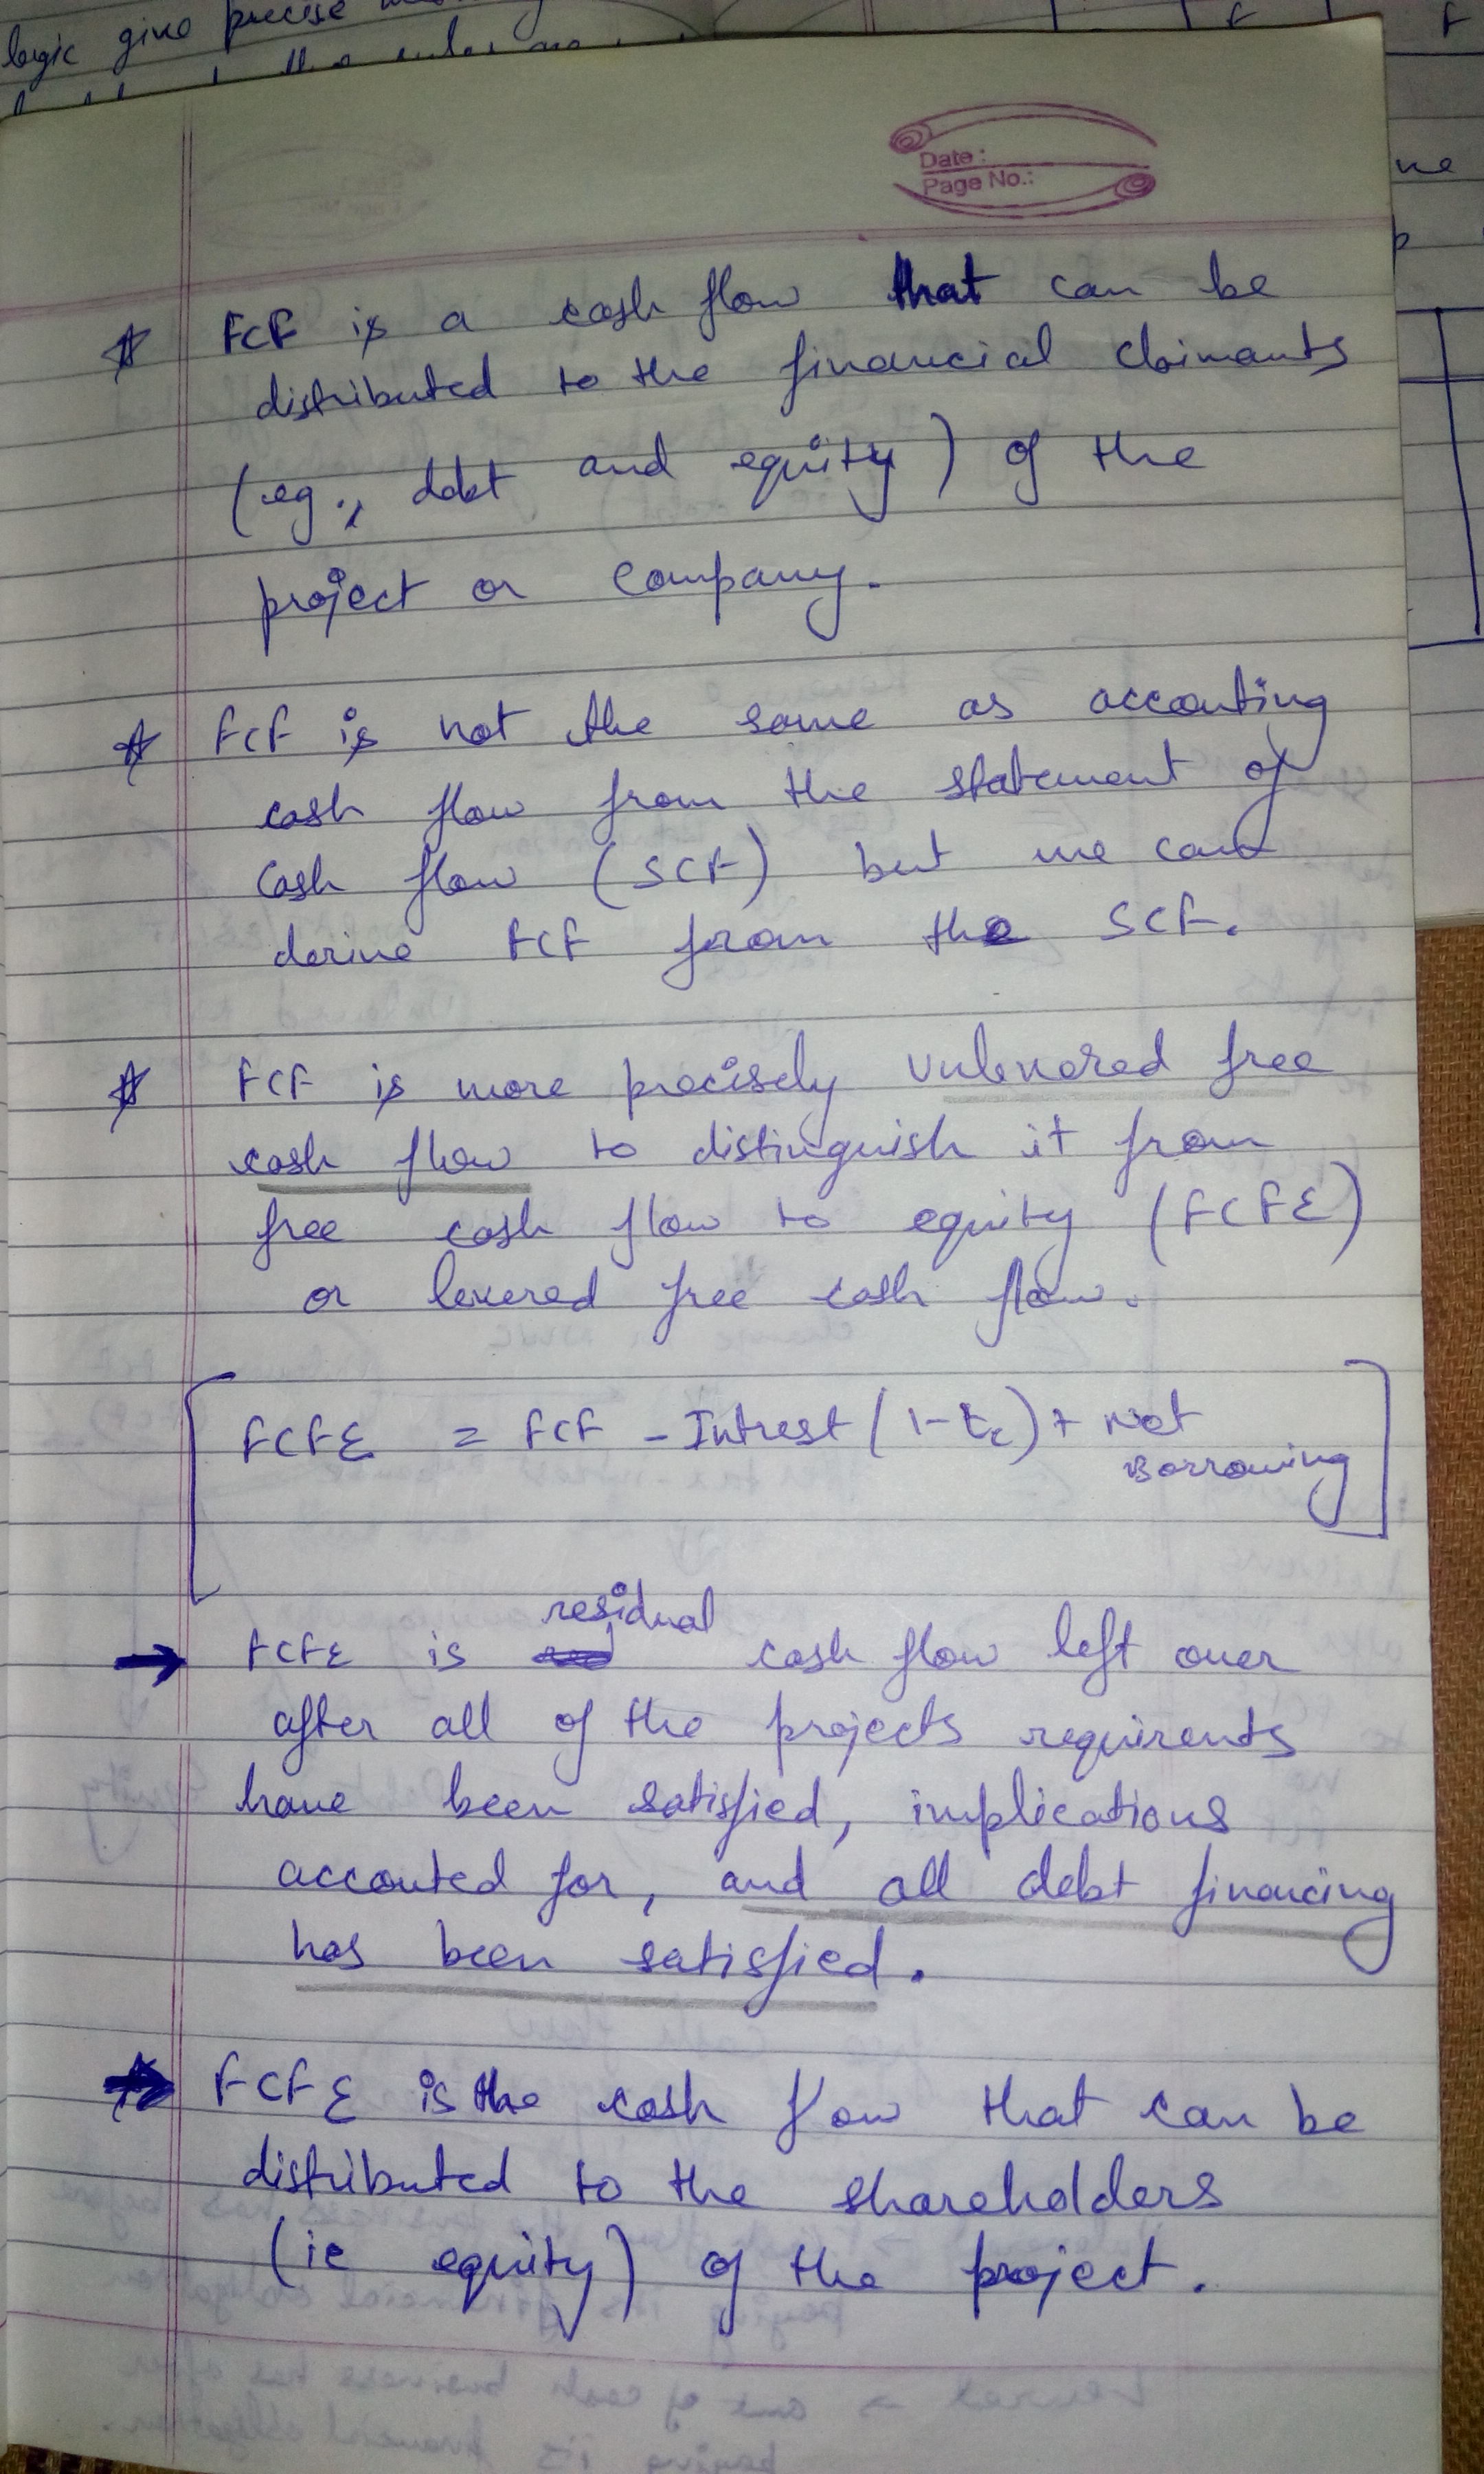 logic give precise
Date :
Page No.:
FCF is a cash flow that can be
distributed to the financial claimants
(eg., debt and equity) of the
project or company.
FCF is not the same as accounting
cash flow from the statement of
Cash flow (SCF) but we can
derive FCF from the SCF.
FCF is more precisely unlevered free
cash flow to distinguish it from
free cash flow to equity (FCFE)
or levered free cash flow.
[FCFE = FCF - Intrest (1-tc) + Net
Borrowing]
residual
FCFE is cash flow left over
after all of the projects requirents
have been satisfied, implications
accouted for, and all debt financing
has been satisfied.
→ FCFE is the cash flow that can be
distributed to the shareholders
(ie equity) of the project.